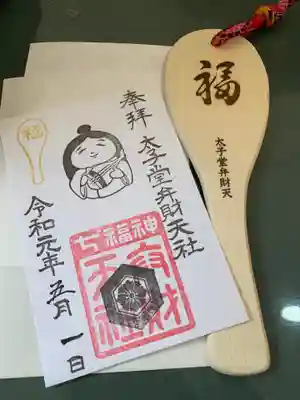 奉拝
太子堂弁財天社
福
令和元年五月一日
七福神
福
太子堂弁財天